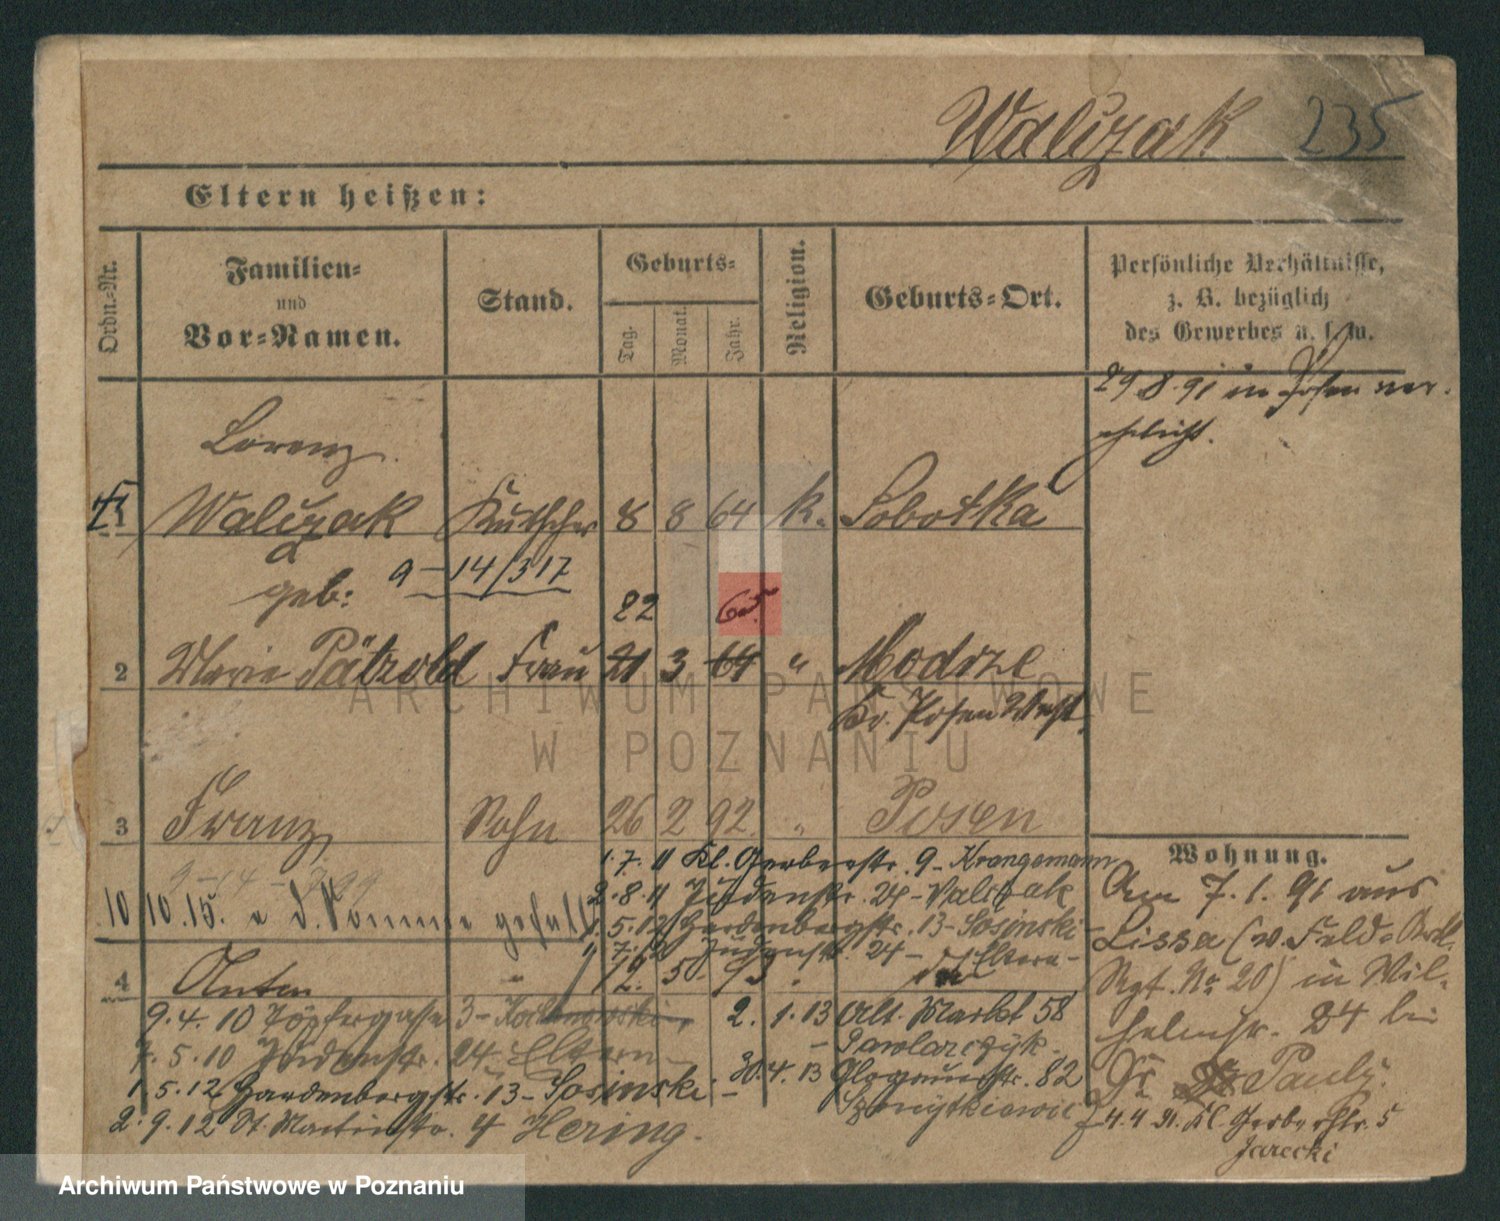 Walczak 235
Eltern heißen:
Ordn.-Nr.
Familien-
und
Vor-Namen.
Stand.
Geburts-
Tag.
Monat.
Jahr.
Religion.
Geburts-Ort.
Persönliche Verhältnisse,
z. B. bezüglich
des Gewerbes u. s. w.
29.8.91 in Posen ver-
ehelicht.
Lorenz
1 Walczak Kutscher 8 8 64 k. Sobotka
9-14/317
geb: 22 65.
2 Marie Pätzold Frau 21 3 64 " Modrze
Kr. Posen West.
3 Franz Sohn 26 2 92 " Posen
1.7.11 Kl. Gerberstr. 9- Krongemann
2.8.11 Judenstr. 24- Valczak
10 10.15. a. d. 
1.5.12 Hardenbergstr. 13- Sosinski-
Judenstr. 24- Eltern-
4 Anton " 12. 5. 93 "
9.4.10 Töpfergasse 3-
7.5.10 Judenstr. 24. Eltern-
1.5.12 Hardenbergstr. 13- Sosinski-
2.9.12 St. Martinstr. 4 Hering.
2.1.13 Alt. Markt 58
- Pawlarczyk-
30.4.13 Glogauerstr. 82
Wohnung.
Am 7.1.91 aus
Lissa (v. Feld-Artl.
Rgt. No 20) in Wil-
helmstr. 24 bei
Dr Pauly.
4.4.91. Kl. Gerberstr. 5
Jarecki
ARCHIWUM PAŃSTWOWE
W POZNANIU
Archiwum Państwowe w Poznaniu